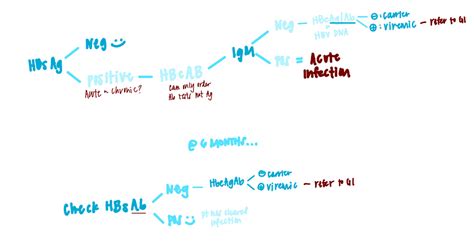 HBsAg
Neg
positive
Acute or chronic?
HBcAB
can only order
Ab tests not Ag
IgM
Neg
HBeAg|Ab
+
HBV DNA
⊖: carrier
⊕: viremic - refer to GI
Pos = Acute
Infection
@ 6 MONTHS...
Check HBsAb
Neg
HbeAgAb
⊖ carrier
⊕ viremic - refer to GI
Pos
pt has cleared
infection